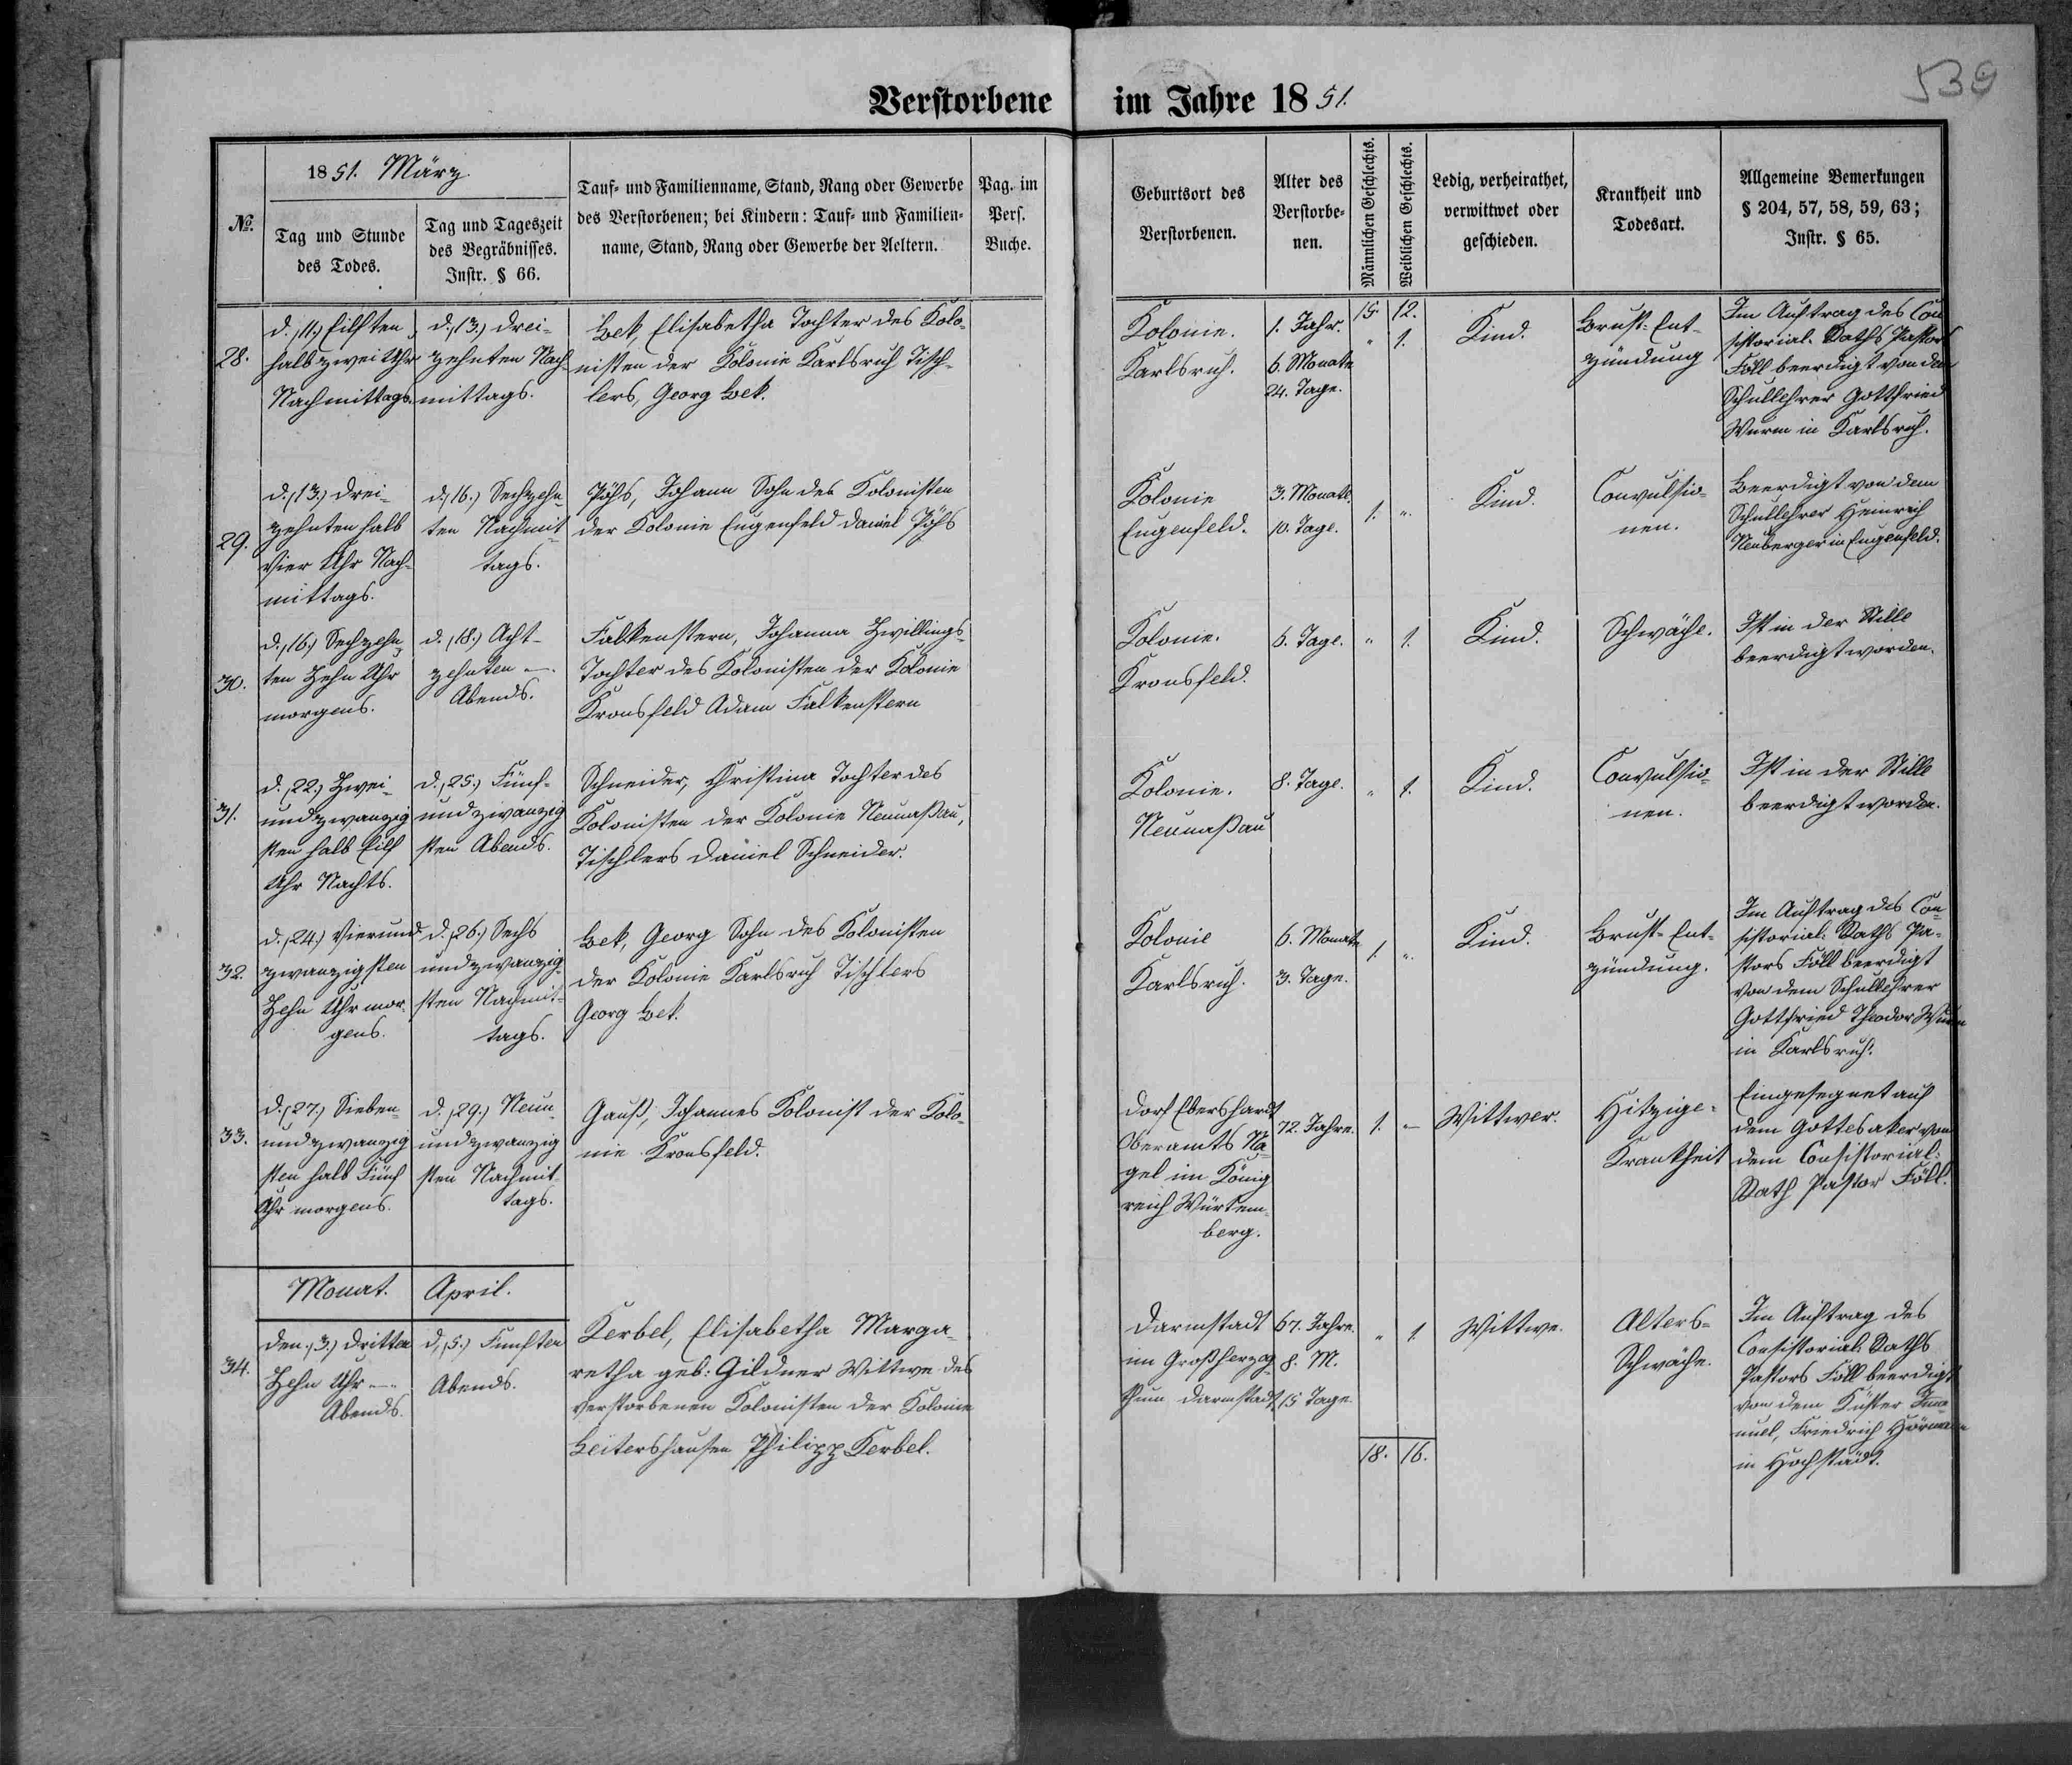 530
Verstorbene im Jahre 1851.
No.
1851. März.
Tag und Stunde
des Todes.
Tag und Tageszeit
des Begräbnisses.
Instr. § 66.
Tauf- und Familienname, Stand, Rang oder Gewerbe
des Verstorbenen; bei Kindern: Tauf- und Familien-
name, Stand, Rang oder Gewerbe der Aeltern.
Pag. im
Pers.
Buche.
Geburtsort des
Verstorbenen.
Alter des
Verstorbe-
nen.
Männlichen Geschlechts.
Weiblichen Geschlechts.
Ledig, verheirathet,
verwittwet oder
geschieden.
Krankheit und
Todesart.
Allgemeine Bemerkungen
§ 204, 57, 58, 59, 63;
Instr. § 65.
28.
d. (11.) Eilften
halb zwei Uhr
Nachmittags.
d. (13.) drei-
zehnten Nach-
mittags.
Bek, Elisabetha Tochter des Kolo-
nisten der Kolonie Karlsruh Tisch-
lers, Georg Bek.
Kolonie.
Karlsruh.
1. Jahr.
6. Monate
24. Tage.
15. 12.
" 1.
Kind.
Brust-Ent-
zündung
Im Auftrag des Con
sistorial-Raths Pastors
Föll beerdigt von dem
Schullehrer Gottfried
Wurm in Karlsruh.
29.
d. (13.) drei-
zehnten halb
Vier Uhr Nach-
mittags.
d. (16.) Sechzehn-
ten Nachmit-
tags.
Pöhs, Johann Sohn des Kolonisten
der Kolonie Eugenfeld Daniel Pöhs
Kolonie
Eugenfeld.
3. Monate
10. Tage.
1. "
Kind.
Convulsio-
nen.
Beerdigt von dem
Schullehrer Heinrich
Neuberger in Eugenfeld.
30.
d. (16.) Sechzehn-
ten Zehn Uhr
morgens.
d. (18.) Acht-
zehnten —
Abends.
Falkenstern, Johanna Zwillings-
Tochter des Kolonisten der Kolonie
Kronsfeld Adam Falkenstern
Kolonie.
Kronsfeld.
6. Tage.
" 1.
Kind.
Schwäche.
Ist in der Stille
beerdigt worden.
31.
d. (22.) Zwei-
undzwanzig
sten halb Eilf
Uhr Nachts.
d. (25.) Fünf-
undzwanzig
sten Abends.
Schneider, Christina Tochter des
Kolonisten der Kolonie Neunaßau,
Tischlers Daniel Schneider.
Kolonie.
Neunaßau
8. Tage.
" 1.
Kind.
Convulsio-
nen.
Ist in der Stille
beerdigt worden.
32.
d. (24.) Vierund
zwanzigsten
Zehn Uhr mor-
gens.
d. (26.) Sechs
undzwanzig-
sten Nachmit-
tags.
Bek, Georg Sohn des Kolonisten
der Kolonie Karlsruh Tischlers
Georg Bek.
Kolonie
Karlsruh.
6. Monate
3. Tage.
1. "
Kind.
Brust-Ent-
zündung.
Im Auftrag des Con-
sistorial-Raths Pa-
stors Föll beerdigt
von dem Schullehrer
Gottfried Theodor Wurm
in Karlsruh.
33.
d. (27.) Sieben-
undzwanzig
sten halb Fünf
Uhr morgens.
d. (29.) Neun-
undzwanzig
sten Nachmit-
tags.
Gauß, Johannes Kolonist der Kolo-
nie Kronsfeld.
Dorf Ebershardt
Oberamts Na-
gel im König
reich Würtem-
berg.
72. Jahre.
1. —
Wittwer.
Hitzige-
Krankheit
Eingesegnet auf
dem Gottesaker von
dem Consistorial-
Rath Pastor Föll.
Monat. April.
34.
den (3.) dritten
Zehn Uhr —
Abends.
d. (5.) Fünften
Abends.
Kerbel, Elisabetha Marga-
retha geb: Gildner Wittwe des
verstorbenen Kolonisten der Kolonie
Leitershausen Philipp Kerbel.
Darmstadt
im Großherzog-
thum Darmstadt
67. Jahre.
8. M.
15 Tage
" 1.
Wittwe.
Alters-
Schwäche.
Im Auftrag des
Consistorial-Raths
Pastors Föll beerdigt
von dem Küster Imma-
nuel, Friedrich Hörmann
in Hochstädt.
18. 16.